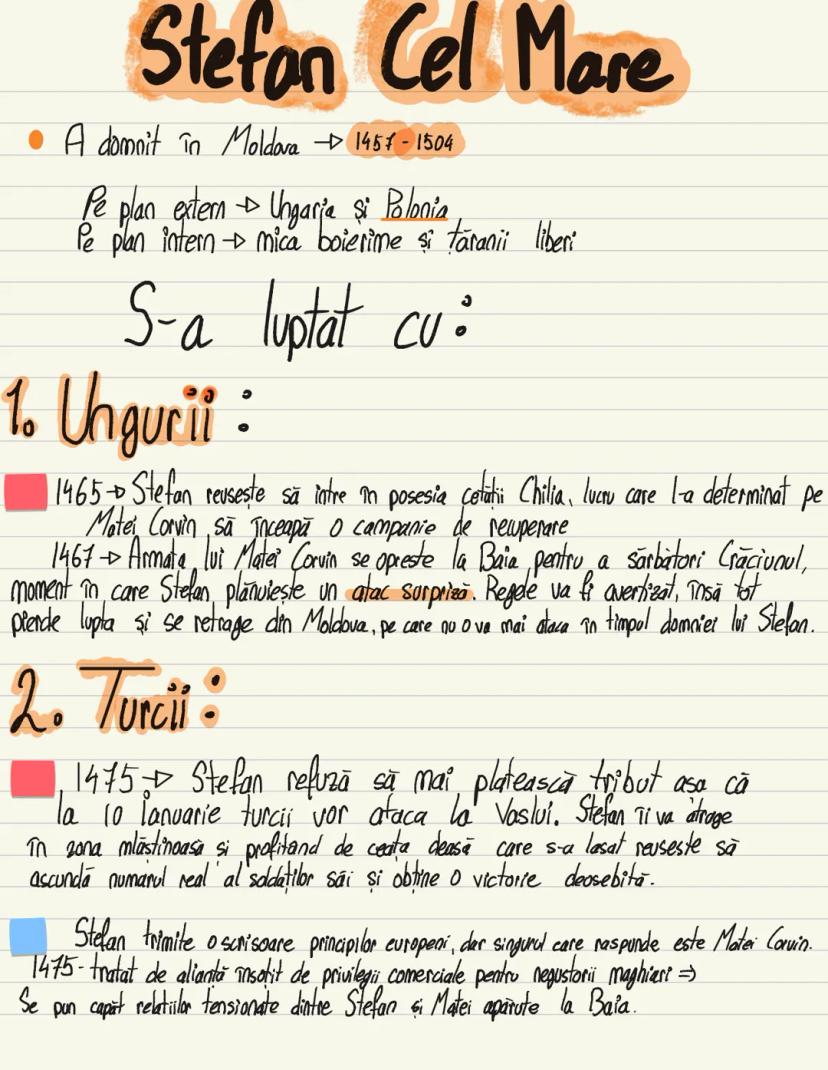 Stefan Cel Mare
A domnit în Moldova → 1457 - 1504
Pe plan extern → Ungaria și Polonia
Pe plan intern → mica boierime și țăranii liberi
S-a luptat cu:
1. Ungurii:
1465 → Stefan reusește să intre în posesia cetății Chilia, lucru care l-a determinat pe
Matei Corvin să înceapă o campanie de recuperare
1467 → Armata lui Matei Corvin se oprește la Baia pentru a sărbători Crăciunul,
moment în care Stefan plănuiește un atac surpriză. Regele va fi avertizat, însă tot
pierde lupta și se retrage din Moldova, pe care nu o va mai ataca în timpul domniei lui Stefan.
2. Turcii:
1475 → Stefan refuză să mai platească tribut așa că
la 10 Ianuarie turcii vor ataca la Vaslui. Stefan îi va atrage
în zona mlăstinoasa si profitand de ceața deasă care s-a lasat reuseste să
ascundă numarul real al soldaților săi și obține o victorie deosebită.
Stefan trimite o scrisoare principilor europeni, dar singurul care raspunde este Matei Corvin.
1475 - tratat de alianță însoțit de privilegii comerciale pentru negustorii maghiari ⇒
Se pun capăt relațiilor tensionate dintre Stefan și Matei apărute la Baia.